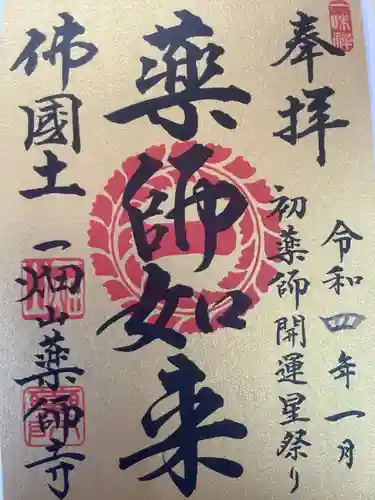 奉拝
令和四年一月
初薬師開運星祭り
薬師如来
佛國土
一畑山薬師寺